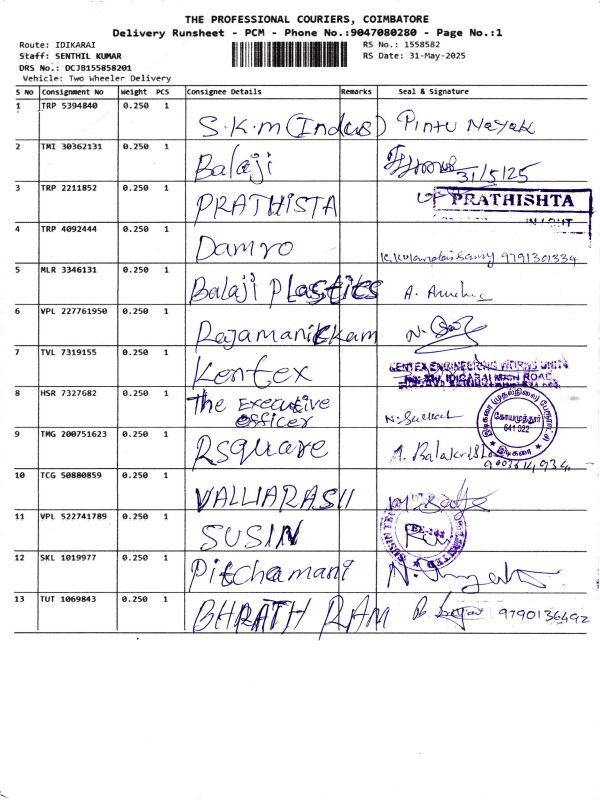 THE PROFESSIONAL COURIERS, COIMBATORE
Delivery Runsheet - PCM - Phone No.:9047080280 - Page No.:1
Route: IDIKARAI
RS No.: 1558582
Staff: SENTHIL KUMAR
RS Date: 31-May-2025
DRS No.: DCJB155858201
Vehicle: Two Wheeler Delivery
S No Consignment No Weight PCS Consignee Details Remarks Seal & Signature
1 TRP 5394840 0.250 1 S.K.m (Indus) Pintu Nayak
2 TMI 30362131 0.250 1 Balaji 31/5/25
3 TRP 2211852 0.250 1 PRATHISTA PRATHISHTA
IN / OUT
4 TRP 4092444 0.250 1 Damro 9791301334
5 MLR 3346131 0.250 1 Balaji Plastics A.
6 VPL 227761950 0.250 1 Rajamanickam N.
7 TVL 7319155 0.250 1 Kentex KENTEX ENGINEERING WORKS UNIT
IDIKARAI MAIN ROAD
8 HSR 7327682 0.250 1 The Executive officer N.
இடிகரை (முதல்நிலை) பேரூராட்சி
கோயமுத்தூர்
641 022
இடிகரை
9 TMG 200751623 0.250 1 Rsquare A. Balakris
10 TCG 50880859 0.250 1 VALLIARASU
11 VPL 522741789 0.250 1 SUSIN SUSIN LIMITED
12 SKL 1019977 0.250 1 Pitchamani N.
13 TUT 1069843 0.250 1 BHRATH RAM 9790136492